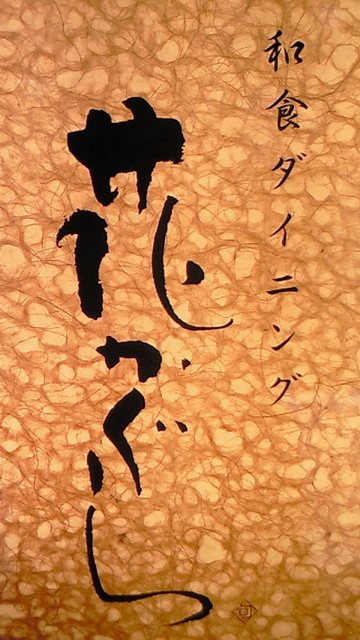 和食ダイニング
花かぐら